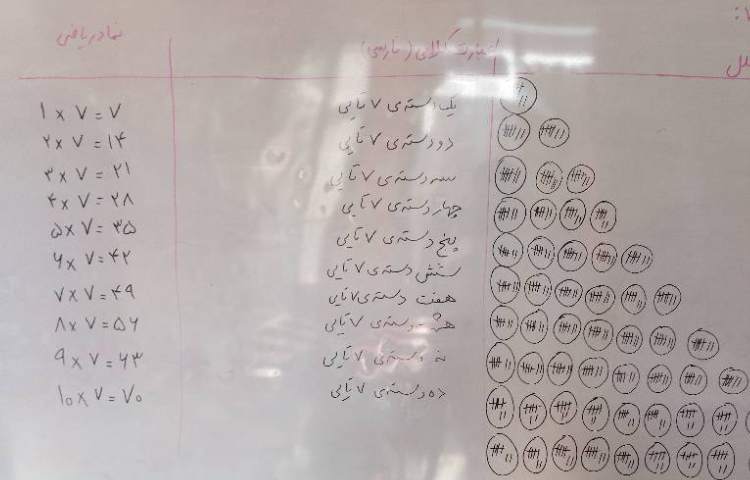 نماد ریاضی
عبارت کلامی (فارسی)
یک دسته‌ی ۷ تایی
۱ × ۷ = ۷
دو دسته‌ی ۷ تایی
۲ × ۷ = ۱۴
سه دسته‌ی ۷ تایی
۳ × ۷ = ۲۱
چهار دسته‌ی ۷ تایی
۴ × ۷ = ۲۸
پنج دسته‌ی ۷ تایی
۵ × ۷ = ۳۵
شش دسته‌ی ۷ تایی
۶ × ۷ = ۴۲
هفت دسته‌ی ۷ تایی
۷ × ۷ = ۴۹
هشت دسته‌ی ۷ تایی
۸ × ۷ = ۵۶
نه دسته‌ی ۷ تایی
۹ × ۷ = ۶۳
ده دسته‌ی ۷ تایی
۱۰ × ۷ = ۷۰